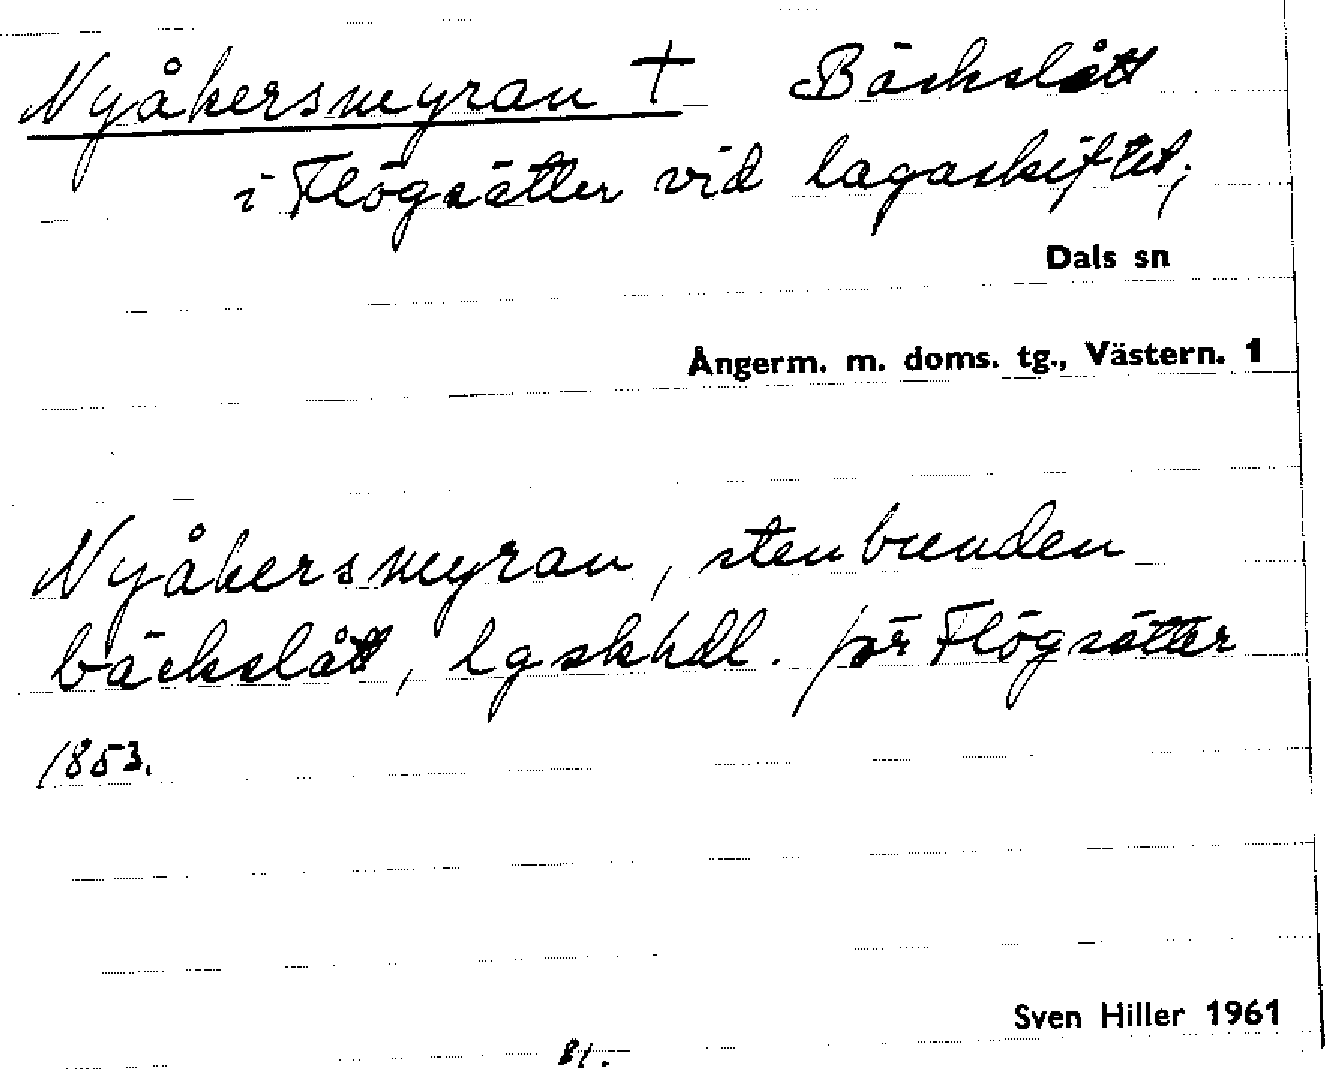 Nyåkersmyran † Bäckslått
i Flögsätter vid lagaskiftet;
Dals sn
Ångerm. m. doms. tg., Västern. 1
Nyåkersmyran, stenbunden
bäckslått, lgskhdl. för Flögsätter
1853.
Sven Hiller 1961
81.